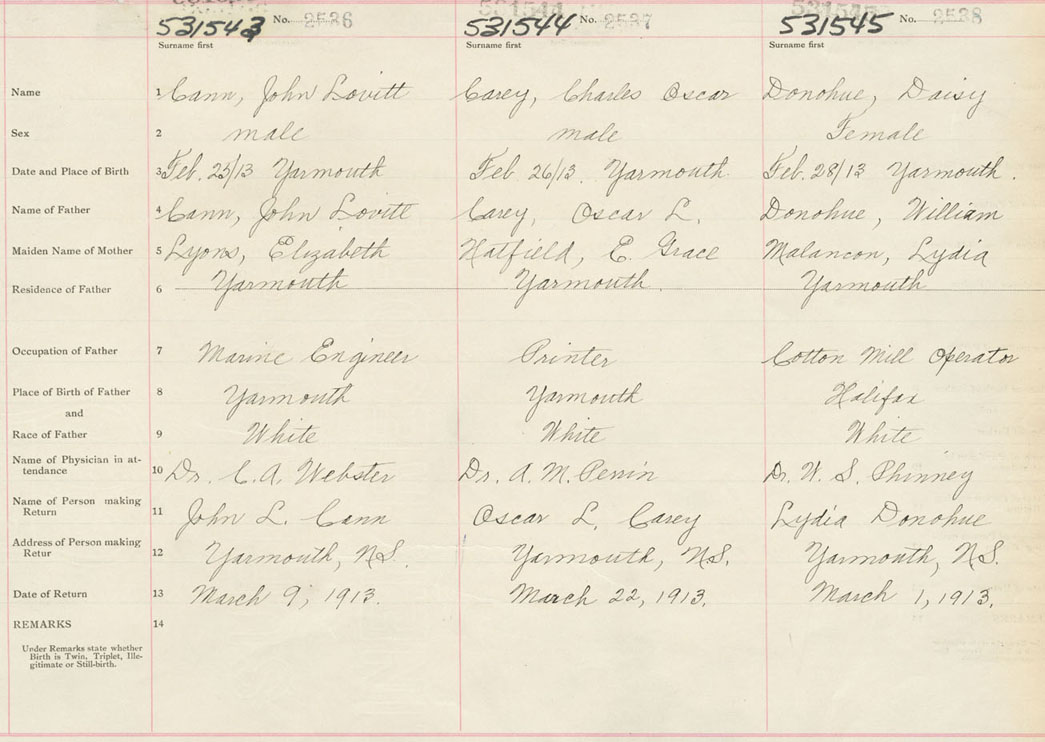 531543 No. 2536 531544 No. 2537 531545 No. 2538
Surname first Surname first Surname first
Name 1 Cann, John Lovitt Carey, Charles Oscar Donohue, Daisy
Sex 2 male male Female
Date and Place of Birth 3 Feb. 25/13 Yarmouth Feb. 26/13. Yarmouth. Feb. 28/13 Yarmouth.
Name of Father 4 Cann, John Lovitt Carey, Oscar L. Donohue, William
Maiden Name of Mother 5 Lyons, Elizabeth Hatfield, E. Grace Malancon, Lydia
Residence of Father 6 Yarmouth Yarmouth. Yarmouth
Occupation of Father 7 Marine Engineer Printer Cotton Mill Operator
Place of Birth of Father 8 Yarmouth Yarmouth Halifax
and
Race of Father 9 White White White
Name of Physician in at-
tendance 10 Dr. C. A. Webster Dr. A. M. Perrin Dr. W. S. Phinney
Name of Person making
Return 11 John L. Cann Oscar L. Carey Lydia Donohue
Address of Person making
Retur 12 Yarmouth, N.S. Yarmouth, N.S. Yarmouth, N.S.
Date of Return 13 March 9, 1913. March 22, 1913. March 1, 1913.
REMARKS 14
Under Remarks state whether
Birth is Twin, Triplet, Ille-
gitimate or Still-birth.